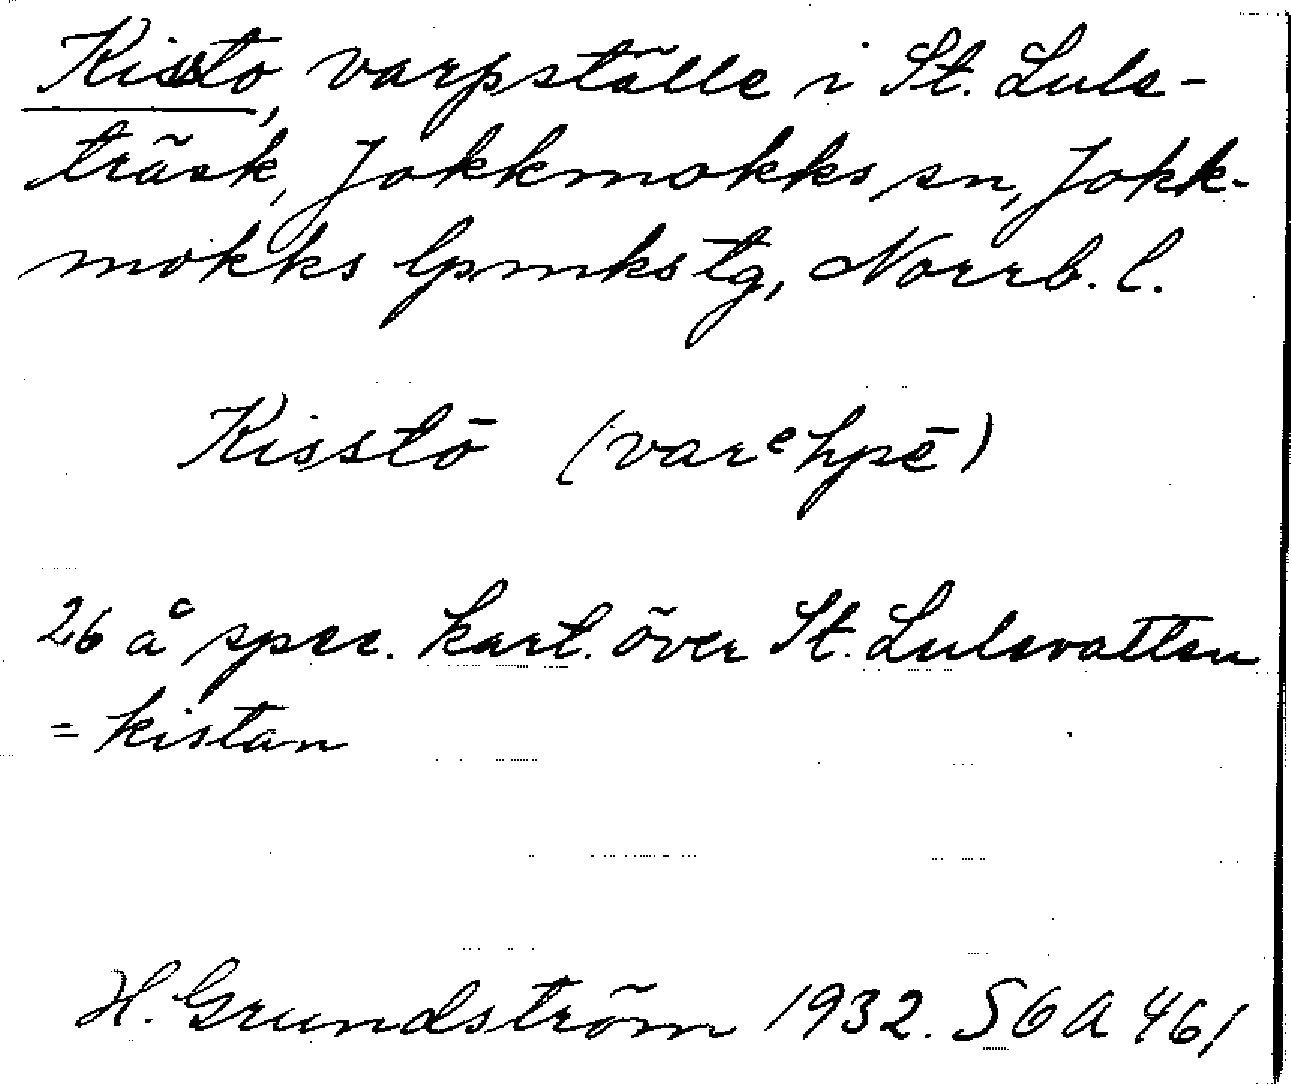 Kissto, varpställe i St. Lule-
träsk, Jokkmokks sn, Jokk-
mokks lpmks tg, Norrb. l.
Kisstō (varᵉhpē)
26 å spec. kart. över St. Lulevatten
= kistan
H. Grundström 1932. SOA 461